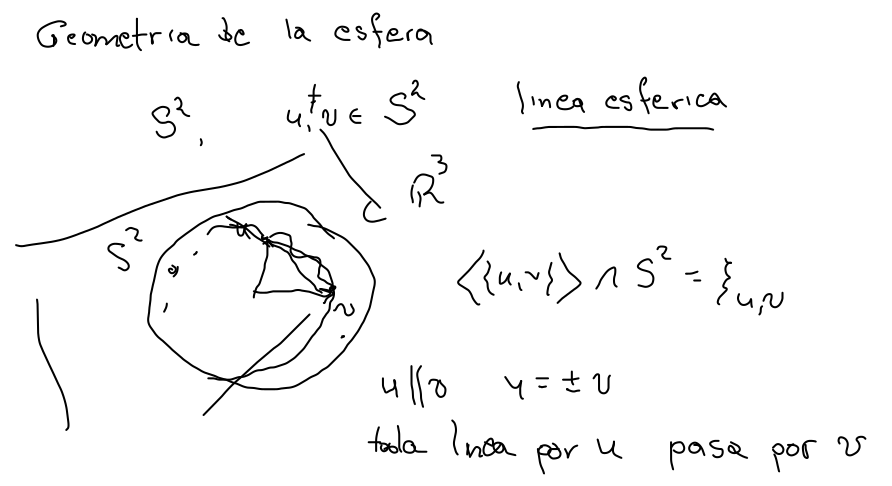 Geometria de la esfera
S², u,v ∈ S²
linea esferica
⊂ ℝ³
S²
u
v
⟨{u,v}⟩ ∩ S² = ξ_{u,v}
u ∥ v u = ± v
toda linea por u pasa por v